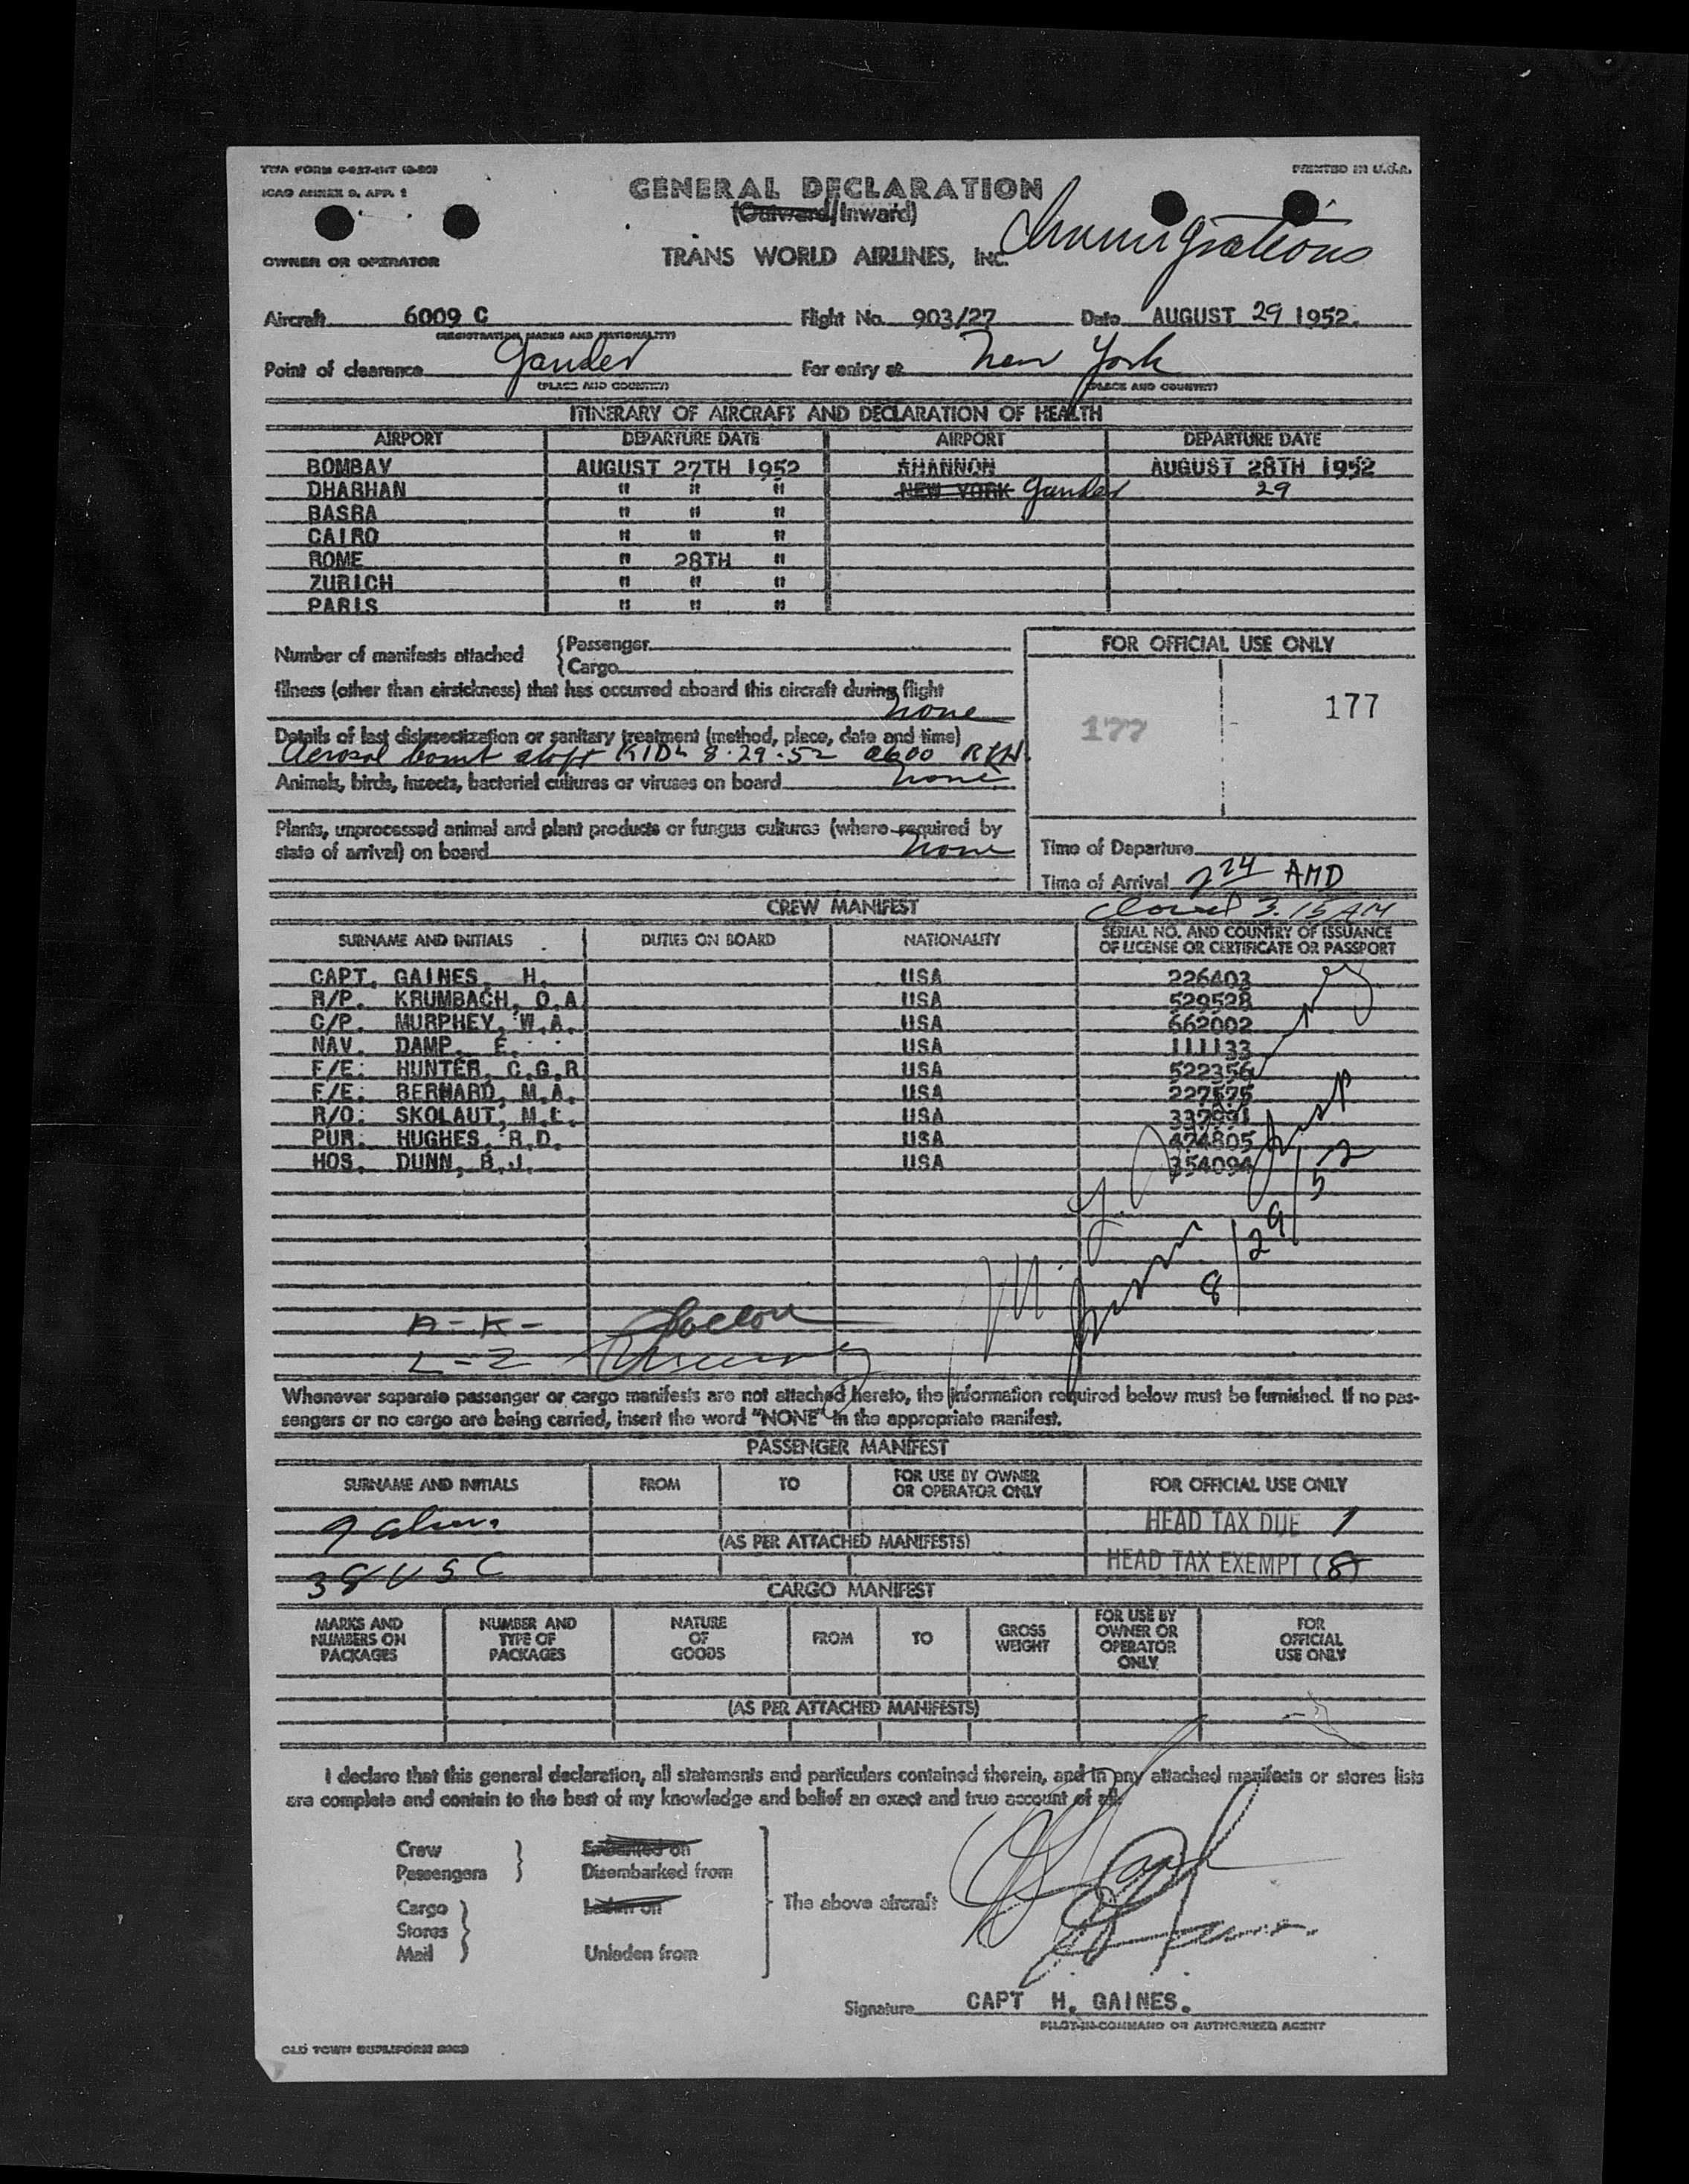 TWA FORM C-927-INT (8-50)
ICAO ANNEX 9, APP. 1
PRINTED IN U.S.A.
GENERAL DECLARATION
(Outward/Inward)
Immigrations
OWNER OR OPERATOR TRANS WORLD AIRLINES, INC.
Aircraft 6009 C Flight No. 903/27 Date AUGUST 29 1952.
(REGISTRATION MARKS AND NATIONALITY)
Point of clearance Gander For entry at New York
(PLACE AND COUNTRY) (PLACE AND COUNTRY)
ITINERARY OF AIRCRAFT AND DECLARATION OF HEALTH
AIRPORT DEPARTURE DATE AIRPORT DEPARTURE DATE
BOMBAY AUGUST 27TH 1952 SHANNON AUGUST 28TH 1952
DHARHAN " " " NEW YORK Gander 29
BASRA " " "
CAIRO " " "
ROME " 28TH "
ZURICH " " "
PARIS " " "
Number of manifests attached {Passenger
{Cargo
FOR OFFICIAL USE ONLY
177 177
Illness (other than airsickness) that has occurred aboard this aircraft during flight
None
Details of last disinsectization or sanitary treatment (method, place, date and time)
Aerosol bomb KIDL 8-29-52 0600
Animals, birds, insects, bacterial cultures or viruses on board None
Plants, unprocessed animal and plant products or fungus cultures (where required by
state of arrival) on board None
Time of Departure
Time of Arrival 2 24 AMD
CREW MANIFEST closed 3.15 AM
SURNAME AND INITIALS DUTIES ON BOARD NATIONALITY SERIAL NO. AND COUNTRY OF ISSUANCE OF LICENSE OR CERTIFICATE OR PASSPORT
CAPT. GAINES, H. USA 226403
R/P. KRUMBACH, O.A. USA 529528
C/P. MURPHEY, W.A. USA 662002
NAV. DAMP, E. USA 111133
F/E: HUNTER, C.G.R USA 522356
F/E: BERNARD, M.A. USA 227575
R/O: SKOLAUT, M.L. USA
PUR: HUGHES, R.D. USA 474805
HOS. DUNN, B.J. USA 354094
8/29/52
A-K-
L-Z
Whenever separate passenger or cargo manifests are not attached hereto, the information required below must be furnished. If no pas-
sengers or no cargo are being carried, insert the word "NONE" in the appropriate manifest.
PASSENGER MANIFEST
SURNAME AND INITIALS FROM TO FOR USE BY OWNER OR OPERATOR ONLY FOR OFFICIAL USE ONLY
9 aliens HEAD TAX DUE 1
(AS PER ATTACHED MANIFESTS)
38 USC HEAD TAX EXEMPT (8)
CARGO MANIFEST
MARKS AND NUMBERS ON PACKAGES NUMBER AND TYPE OF PACKAGES NATURE OF GOODS FROM TO GROSS WEIGHT FOR USE BY OWNER OR OPERATOR ONLY FOR OFFICIAL USE ONLY
(AS PER ATTACHED MANIFESTS)
I declare that this general declaration, all statements and particulars contained therein, and in any attached manifests or stores lists
are complete and contain to the best of my knowledge and belief an exact and true account of all.
Crew } Embarked on
Passengers } Disembarked from
Cargo } Laden on
The above aircraft
Stores
Mail } Unladen from
Signature CAPT H. GAINES.
PILOT-IN-COMMAND OR AUTHORIZED AGENT
OLD TOWN DUPLIFORM